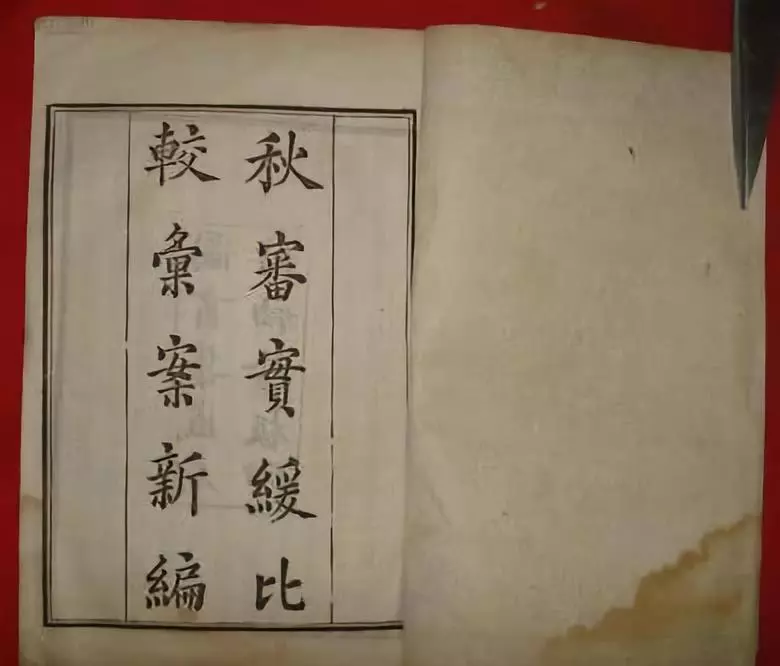 秋審實緩比
較彙案新編